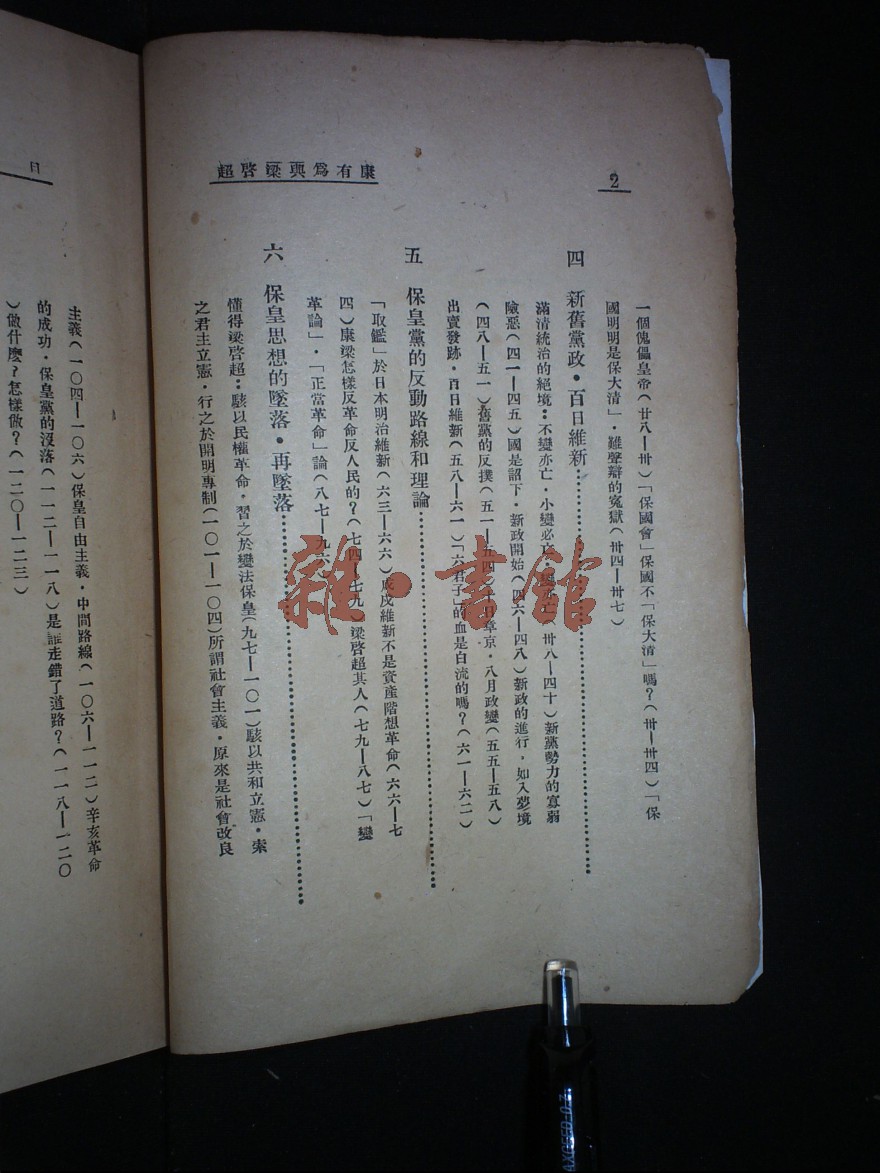 康有爲與梁啓超
2
一個傀儡皇帝(廿八—卅)「保國會」保國不「保大清」嗎?(卅—卅四)「保
國明明是保大清」·雖聲辯的寃獄(卅四—卅七)
四 新舊黨政·百日維新
滿清統治的絕境:不變亦亡·小變必亡·卅八—四十)新黨勢力的寡弱
險惡(四一—四五)國是詔下·新政開始(四六—四八)新政的進行,如入夢境
(四八—五一)舊黨的反撲(五一—五四)章京·八月政變(五五—五八)
出賣發跡·百日維新(五八—六一)「六君子」的血是白流的嗎?(六一—六二)
五 保皇黨的反動路線和理論
「取鑑」於日本明治維新(六三—六六)戊戌維新不是資產階想革命(六六—七
四)康梁怎樣反革命反人民的?(七四—七九)梁啓超其人(七九—八七)「變
革論」·「正當革命」論(八七—九六)
六 保皇思想的墜落·再墜落
懂得梁啓超:駭以民權革命·習之於變法保皇(九七—一〇一)駭以共和立憲·索
之君主立憲·行之於開明專制(一〇一—一〇四)所謂社會主義·原來是社會改良
目
主義(一〇四—一〇六)保皇自由主義·中間路線(一〇六—一一二)辛亥革命
的成功·保皇黨的沒落(一一二—一一八)是誰走錯了道路?(一一八—一二〇
)做什麼?怎樣做?(一二〇—一二三)
雜·書館